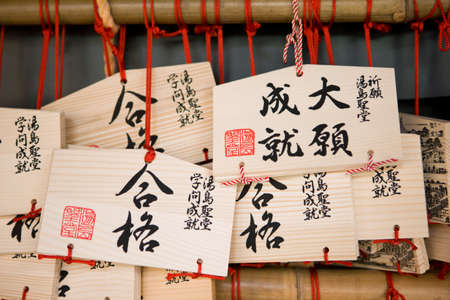 合格
湯島聖堂
学問成就
湯島聖堂
学問成就
合格
湯島聖堂
学問成就
大願
成就
祈願
湯島聖堂
合格
湯島聖堂
学問成就
祈願
湯島聖堂